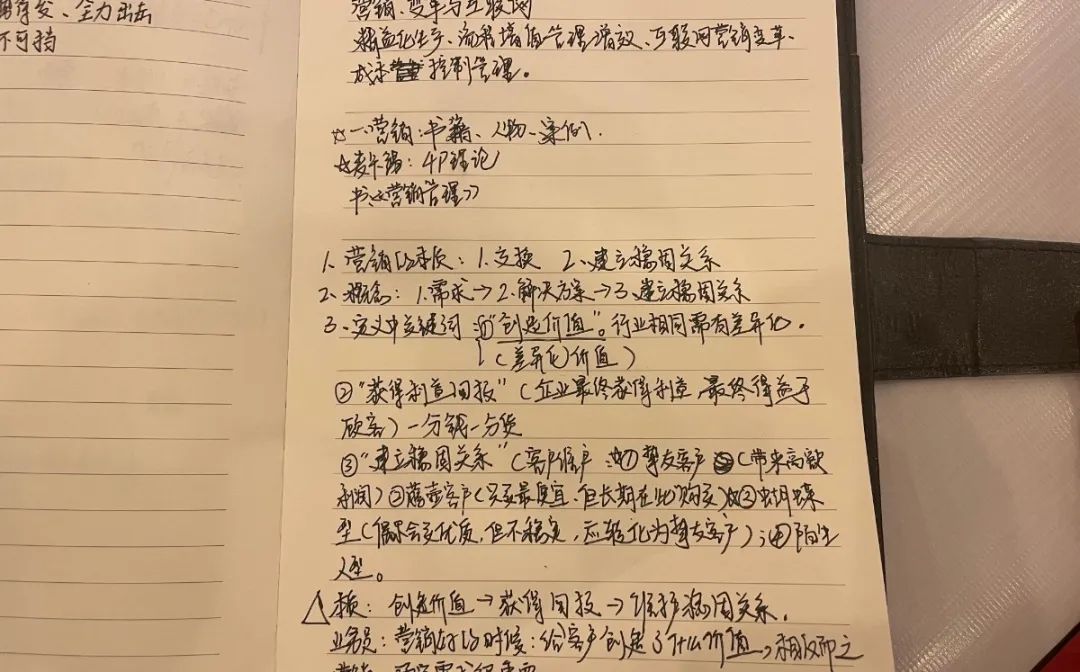 全力出击
不可挡
营销、变革与互联网
精益化生产、流程增值管理增效、互联网营销变革、
成本控制管理。
☆一、营销:书籍、人物、案例.
☆麦卡锡:4P理论
书:《营销管理》
1、营销的本质:1.交换 2、建立稳固关系
2、概念:1.需求→2.解决方案→3、建立稳固关系
3、定义中关键词:①"创造价值"。行业相同需有差异化.
(差异化价值)
②"获得利益回报"(企业最终获得利益,最终得益于
顾客)一分钱一分货
③"建立稳固关系"(客户维护:①挚友客户(带来高额
利润)②藤壶客户(只买最便宜,但长期在此购买)③蝴蝶
型(偶尔会变优质,但不稳定,应转化为挚友客户);④陌生
人型。
△本质:创造价值→获得回报→维护稳固关系.
业务员:营销好的时候:给客户创造了什么价值,相反即之